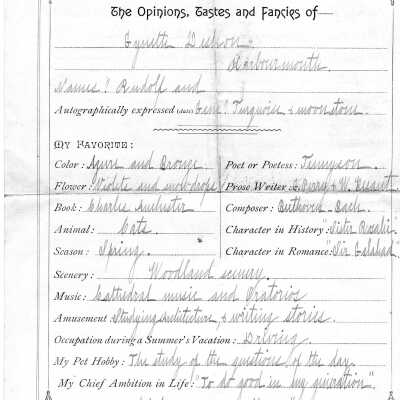 The Opinions, Tastes and Fancies of
Cynthia
Barbourmouth.
Names? Rudolf and
Autographically expressed (date) Gems? Turquois & moonstone.
My Favorite:
Color: Azure and Bronze. Poet or Poetess: Tennyson.
Flower: Violets and snowdrops Prose Writer:
Book: Charlie Composer: Beethoven - Bach.
Animal: Cats. Character in History: "Sister Rosalie".
Season: Spring. Character in Romance: "Sir Galahad".
Scenery: Woodland scenery.
Music: Cathedral music and Oratorios
Amusement: Studying Architecture, & writing stories.
Occupation during a Summer's Vacation: Driving.
My Pet Hobby: The study of the questions of the day.
My Chief Ambition in Life: "To do good in my generation".